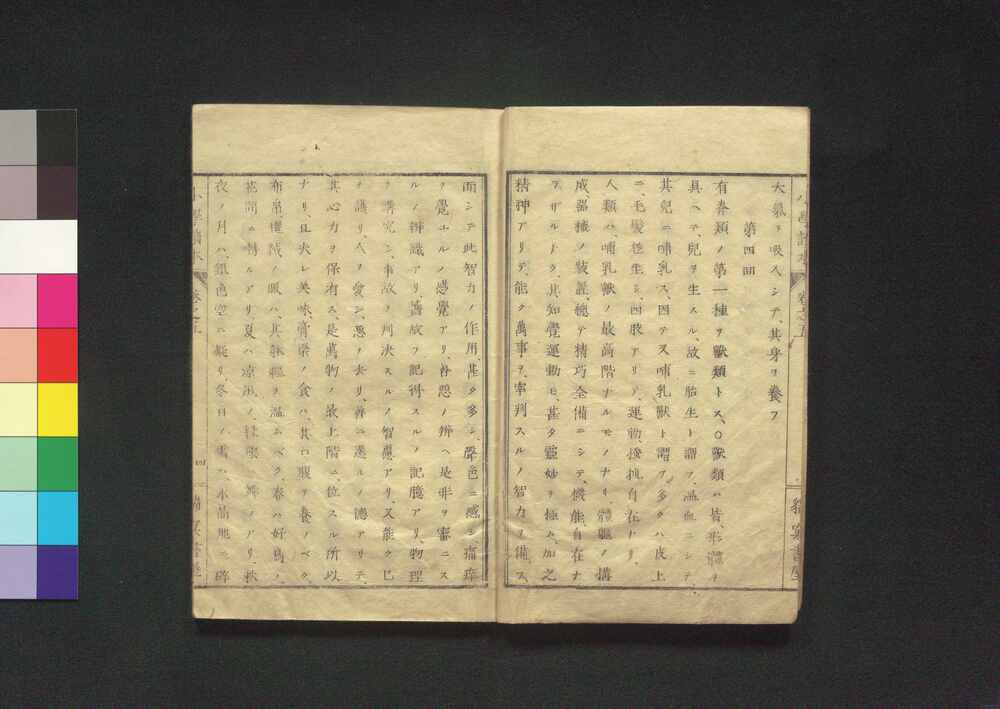 大氣ヲ吸入シテ、其身ヲ養フ
第四回
有脊類ノ第一種ヲ獸類トス、○獸類ハ皆、形體ヲ
具ヘテ、兒ヲ生スル、故ニ胎生ト謂フ、温血ニシテ、
其兒ニ哺乳ス、因テ又哺乳獸ト謂フ、多クハ皮上
ニ、毛髮徑生シ、四肢アリテ、運動、挽挽自在ナリ、
人類ハ、哺乳獸ノ最高階ナルモノナリ、體軀ノ搆
成、器械ノ裝置、總テ精巧全備ニシテ、機能自在ナ
ラザルナク、其知覺運動モ、甚タ靈妙ヲ極ム、加之
精神アリテ、能ク萬事ヲ、宰判スルノ智力ヲ備ス、
而シテ此智力ノ作用、甚タ多シ、聲色ニ感シ痛痒
ヲ覺ユルノ感覺アリ、善惡ノ辨ヘ是非ヲ審ニス
ルノ辨識アリ、舊故ヲ記得スルノ記臆アリ、物理
ヲ講究シ、事故ヲ判決スルノ智慮アリ、又能ク己
ヲ謙リ、人ヲ愛シ、惡ヲ去リ、善ニ遷ルノ德アリテ、
其心力ヲ保有ス、是萬物ノ最上階ニ、位スル所以
ナリ、且夫レ美味膏粱ノ食ハ、其口腹ヲ養ノベク、
布帛、氈絨ノ暖ハ、其軀ヲ温ムベク、春ハ好鳥ノ、
花間ニ囀ルアリ、夏ハ遠淑ノ、綠樹ノアリ、秋
夜ノ月ハ、銀色空ニ凝リ、冬日ノ雪ハ、水晶地ニ碎
小學讀本 卷之五
四